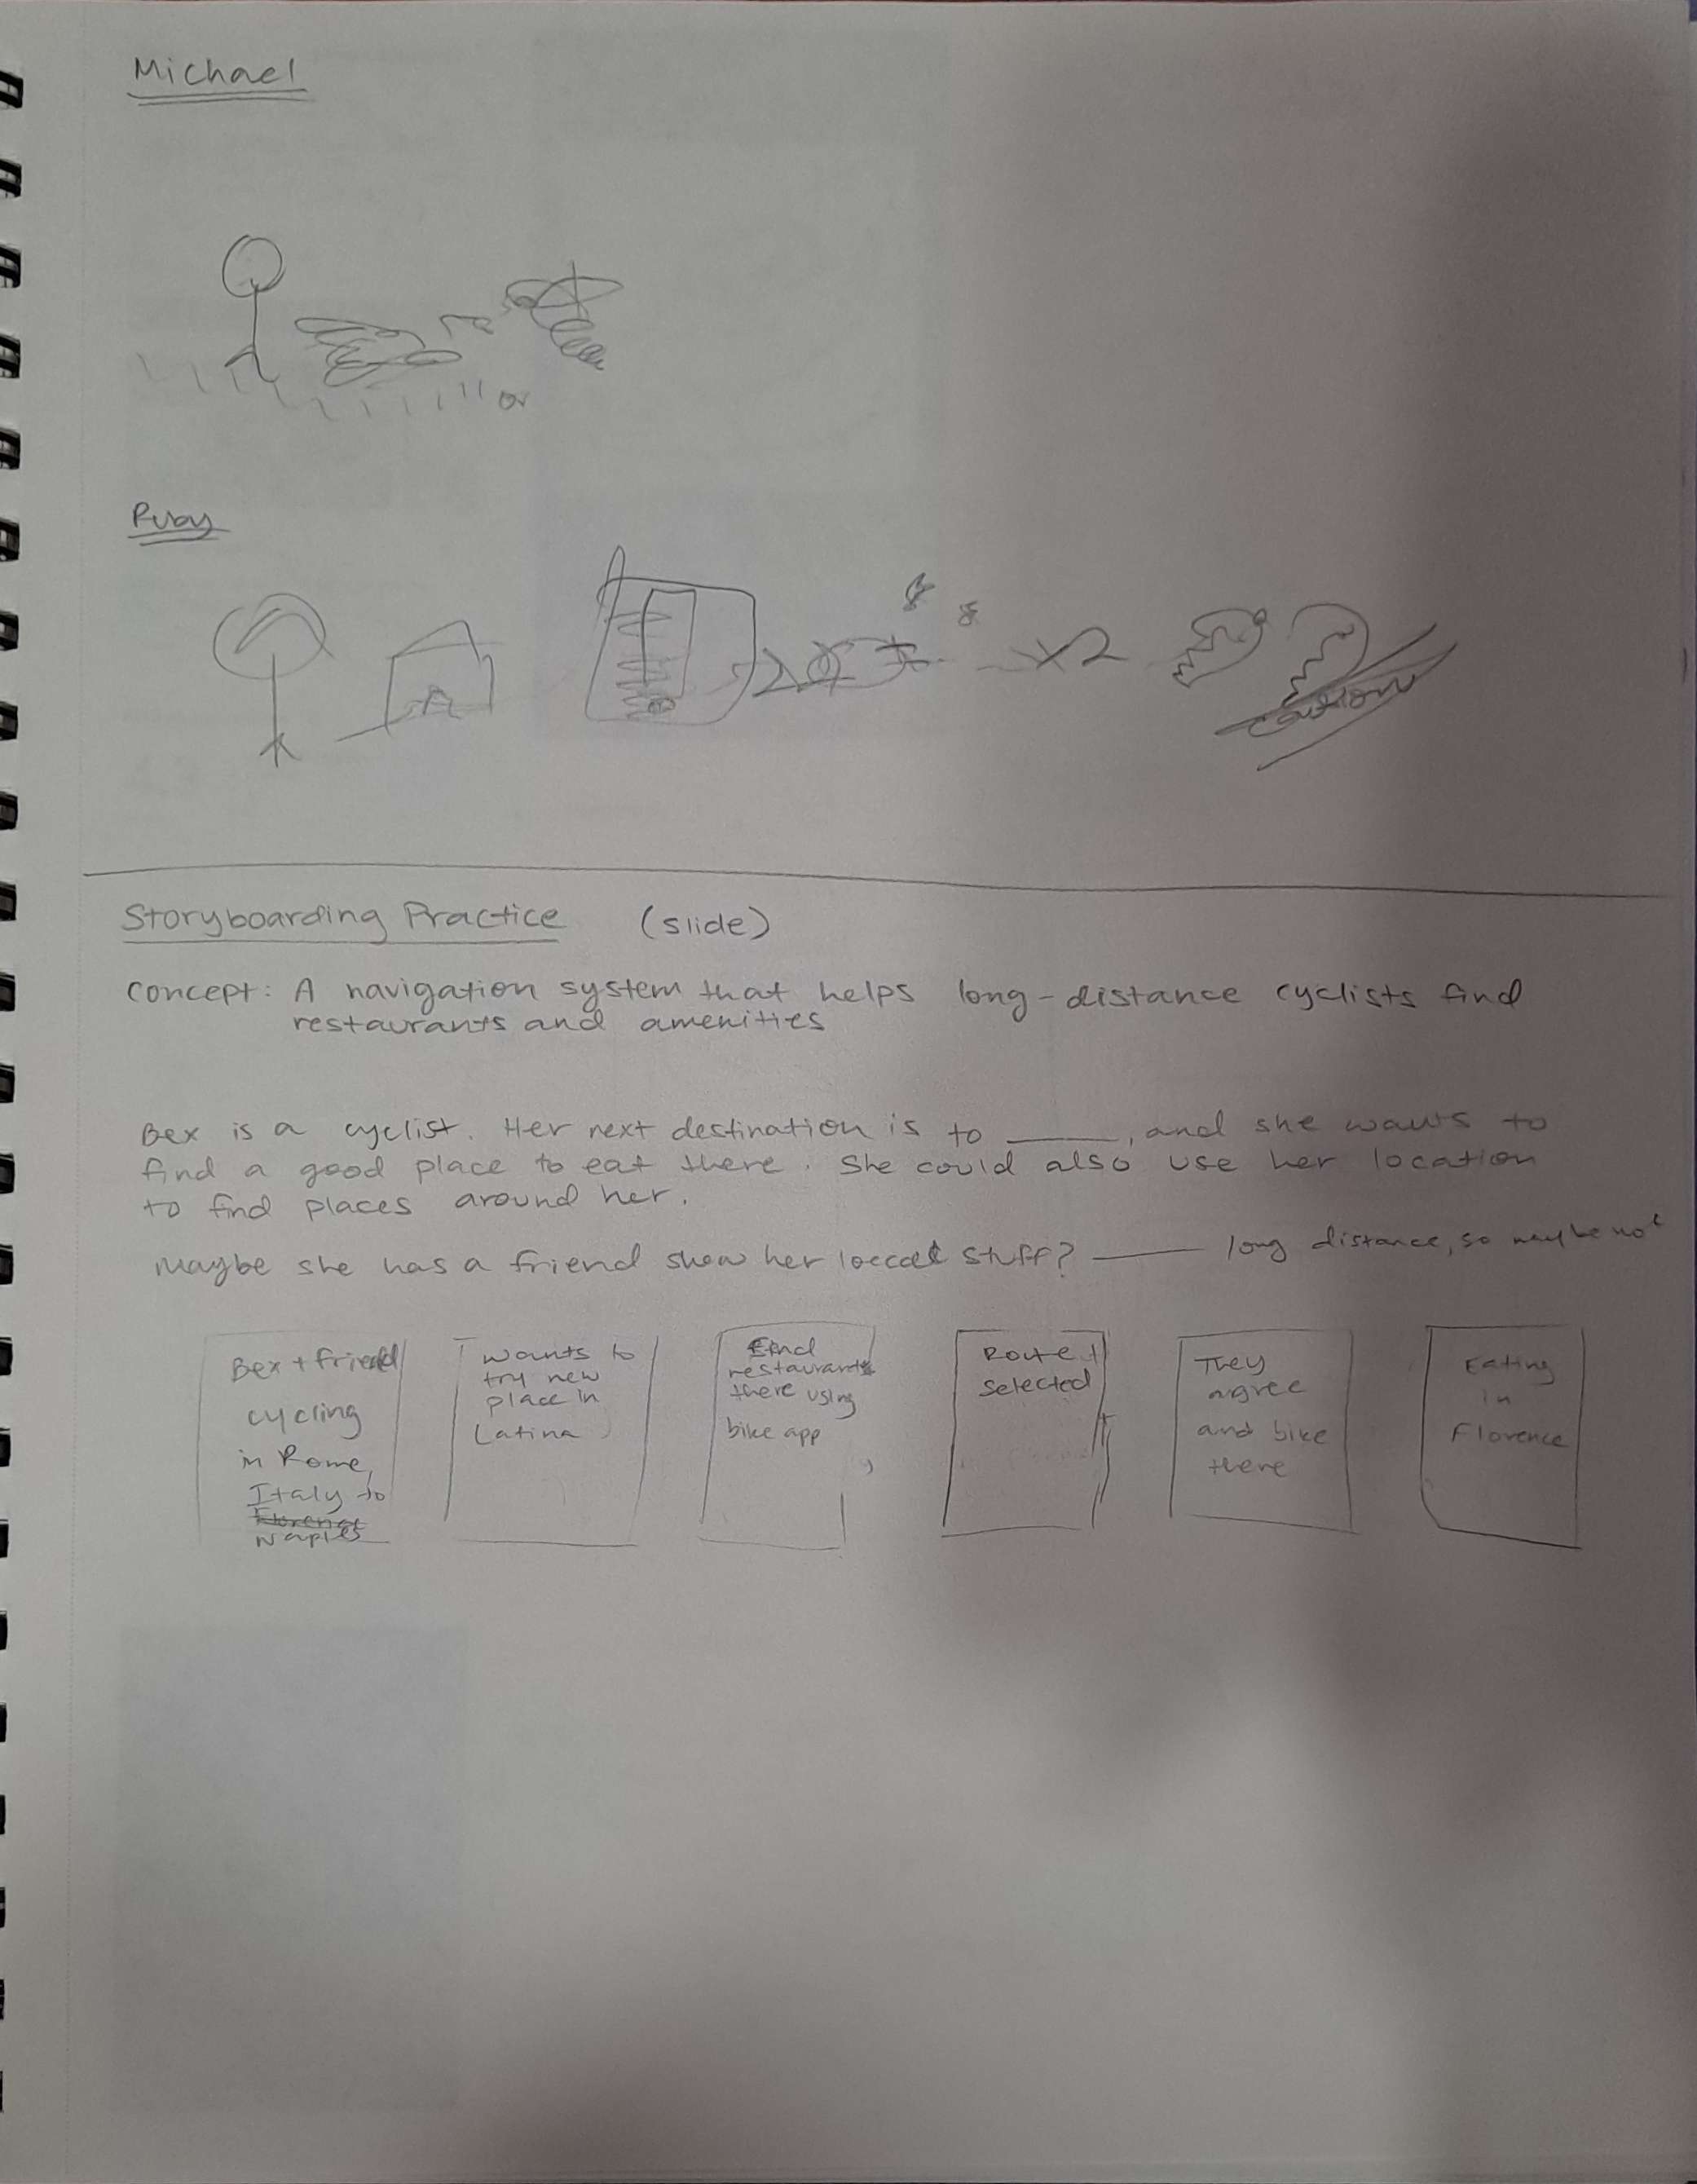 Michael
or
Ruby
x2
caution
Storyboarding Practice (slide)
Concept: A navigation system that helps long-distance cyclists find
restaurants and amenities
Bex is a cyclist. Her next destination is to ____, and she wants to
find a good place to eat there. She could also use her location
to find places around her.
Maybe she has a friend show her local stuff? —— long distance, so maybe not
Bex + friend
cycling
in Rome,
Italy to
Florence
Naples
wants to
try new
place in
Latina
Find
restaurants
there using
bike app
Route
selected
They
agree
and bike
there
Eating
in
Florence